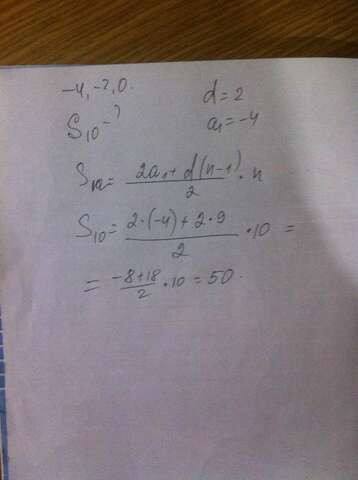 -4, -2, 0.
d = 2
S₁₀ - ?
a₁ = -4
S₁₀ = (2a₁ + d(n-1))/2 · n
S₁₀ = (2·(-4) + 2·9)/2 · 10 =
= (-8+18)/2 · 10 = 50.